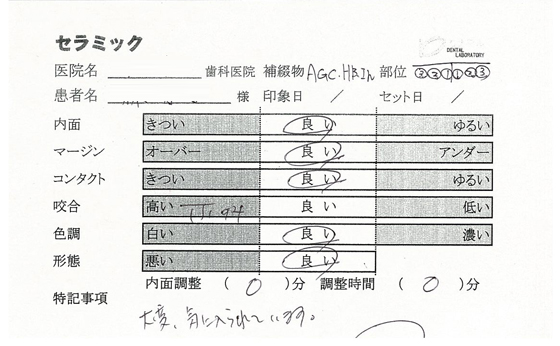 セラミック
DENTAL LABORATORY
医院名 歯科医院 補綴物 AGC.HBIn 部位 ③②①①②③
患者名 様 印象日 / セット日 /
内面 きつい 良い ゆるい
マージン オーバー 良い アンダー
コンタクト きつい 良い ゆるい
咬合 高い 良い 低い
色調 白い 良い 濃い
形態 悪い 良い
内面調整 ( 0 )分 調整時間 ( 0 )分
特記事項
大変、気に入られています。